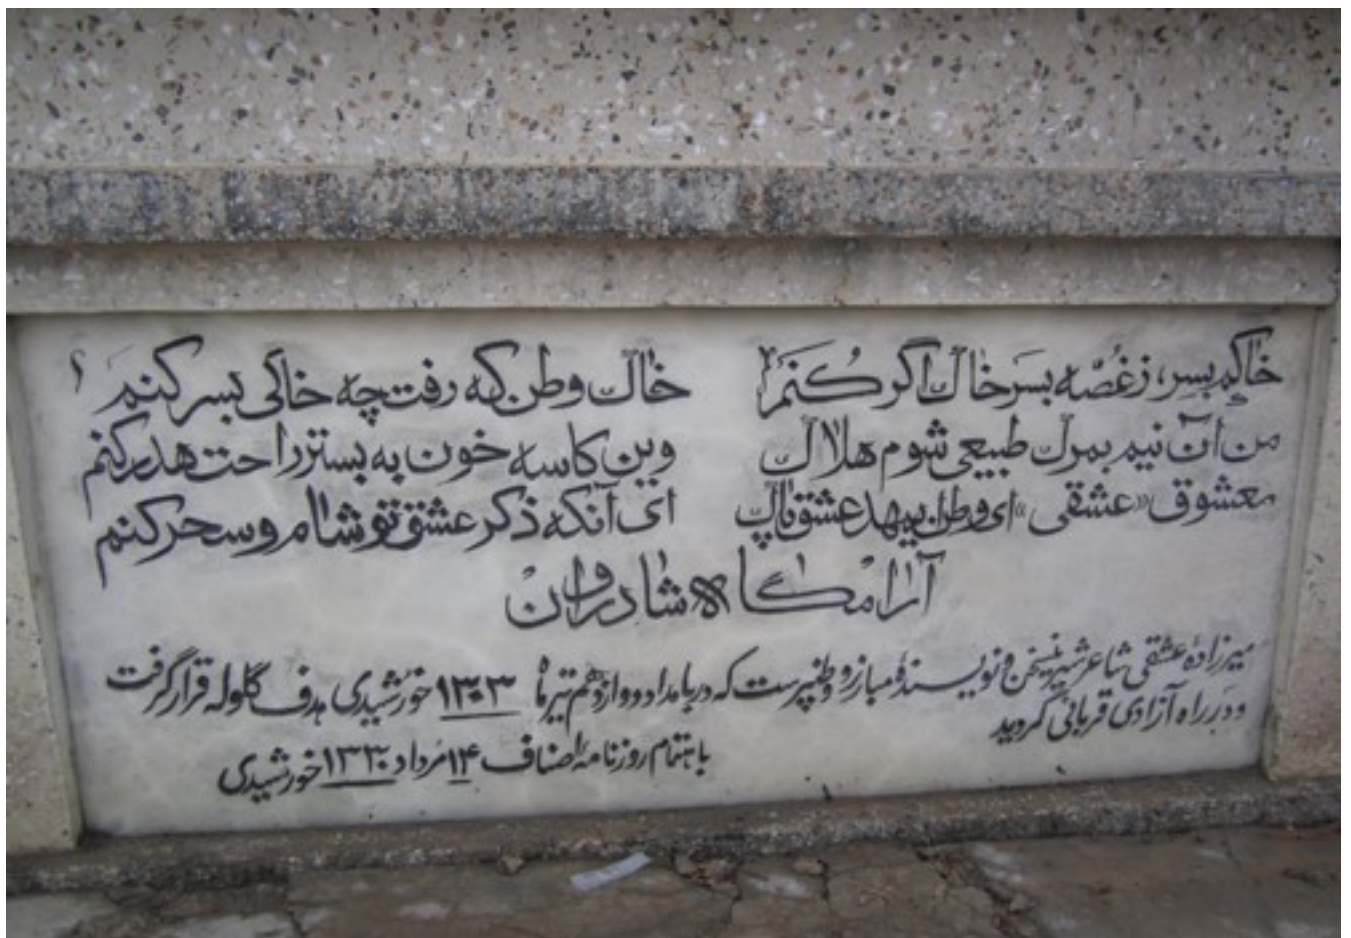 خاکم بسر، ز غصّه بسر خاک اگر کُنَم خاک وطن که رفت چه خاکی بسر کنم
من آن نیم بمرگ طبیعی شوم هلاک وین کاسه خون به بستر راحت هدر کنم
معشوق «عشقی» ای وطن ای عشق پاک ای آنکه ذکر عشق تو شام و سحر کنم
آرامگاه شادروان
میرزاده عشقی شاعر شیرینسخن و نویسندهٔ مبارز و وطنپرست که در بامداد دوازدهم تیرماه ۱۳۰۳ خورشیدی هدف گلوله قرار گرفت
و در راه آزادی قربانی گردید
باهتمام روزنامهٔ اصناف ۱۴ مرداد ۱۳۳۰ خورشیدی